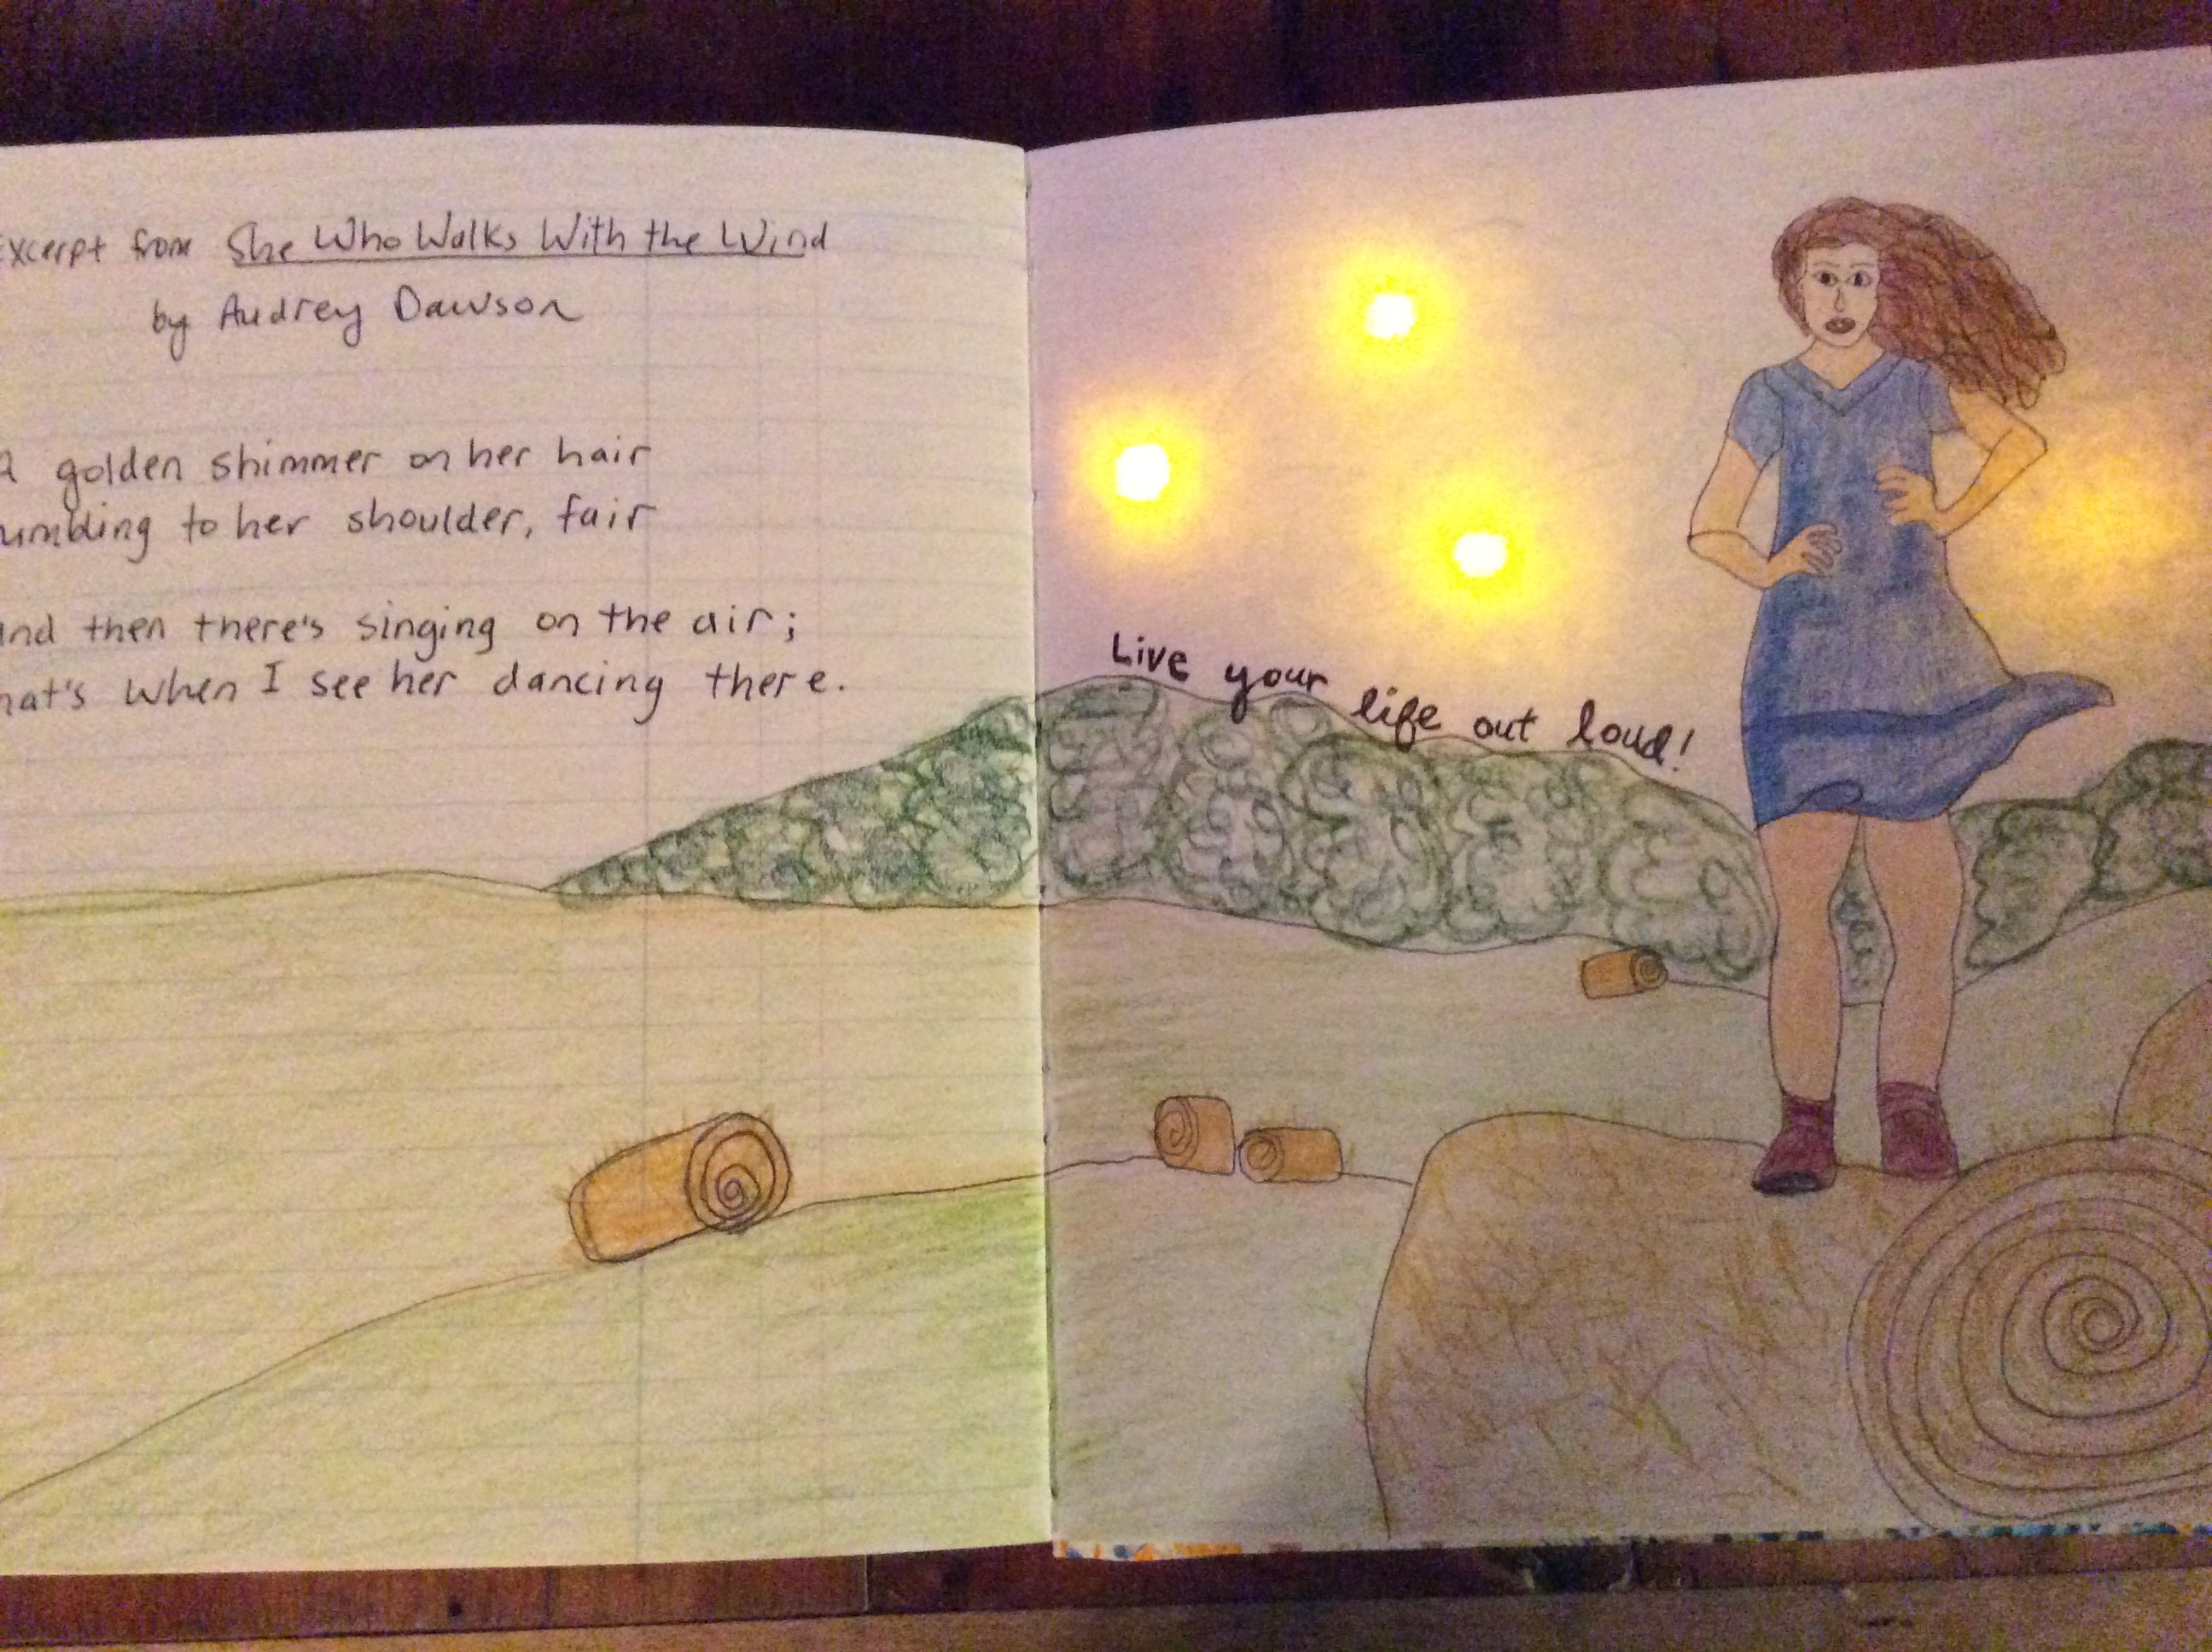 Excerpt from She Who Walks With the Wind
by Audrey Dawson
a golden shimmer on her hair
umbling to her shoulder, fair
and then there's singing on the air;
hat's when I see her dancing there.
Live your life out loud!